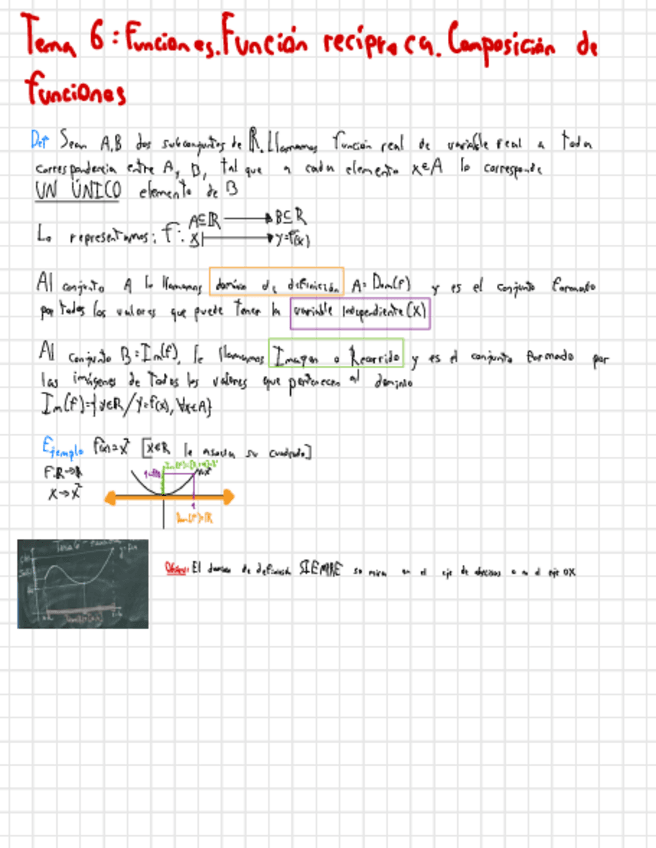 Tema 6: Funciones. Función recíproca. Composición de
funciones
Def Sean A,B dos subconjuntos de ℝ. Llamamos función real de variable real a toda
correspondencia entre A y B, tal que a cada elemento x∈A le corresponde
UN ÚNICO elemento de B
Lo representamos: f: A⊆ℝ → B⊆ℝ
x → y=f(x)
Al conjunto A lo llamamos dominio de definición A=Dom(f) y es el conjunto formado
por todos los valores que puede tomar la variable independiente (x)
Al conjunto B=Im(f), le llamamos Imagen o Recorrido y es el conjunto formado por
las imágenes de todos los valores que pertenecen al dominio
Im(f)={y∈ℝ/y=f(x), ∀x∈A}
Ejemplo f(x)=x² [x∈ℝ le asocia su cuadrado]
F:ℝ→ℝ
x→x²
1
Dom(f)=ℝ
Tema 6
El dominio de definición SIEMPRE se mira en el eje de abscisas o en el eje OX